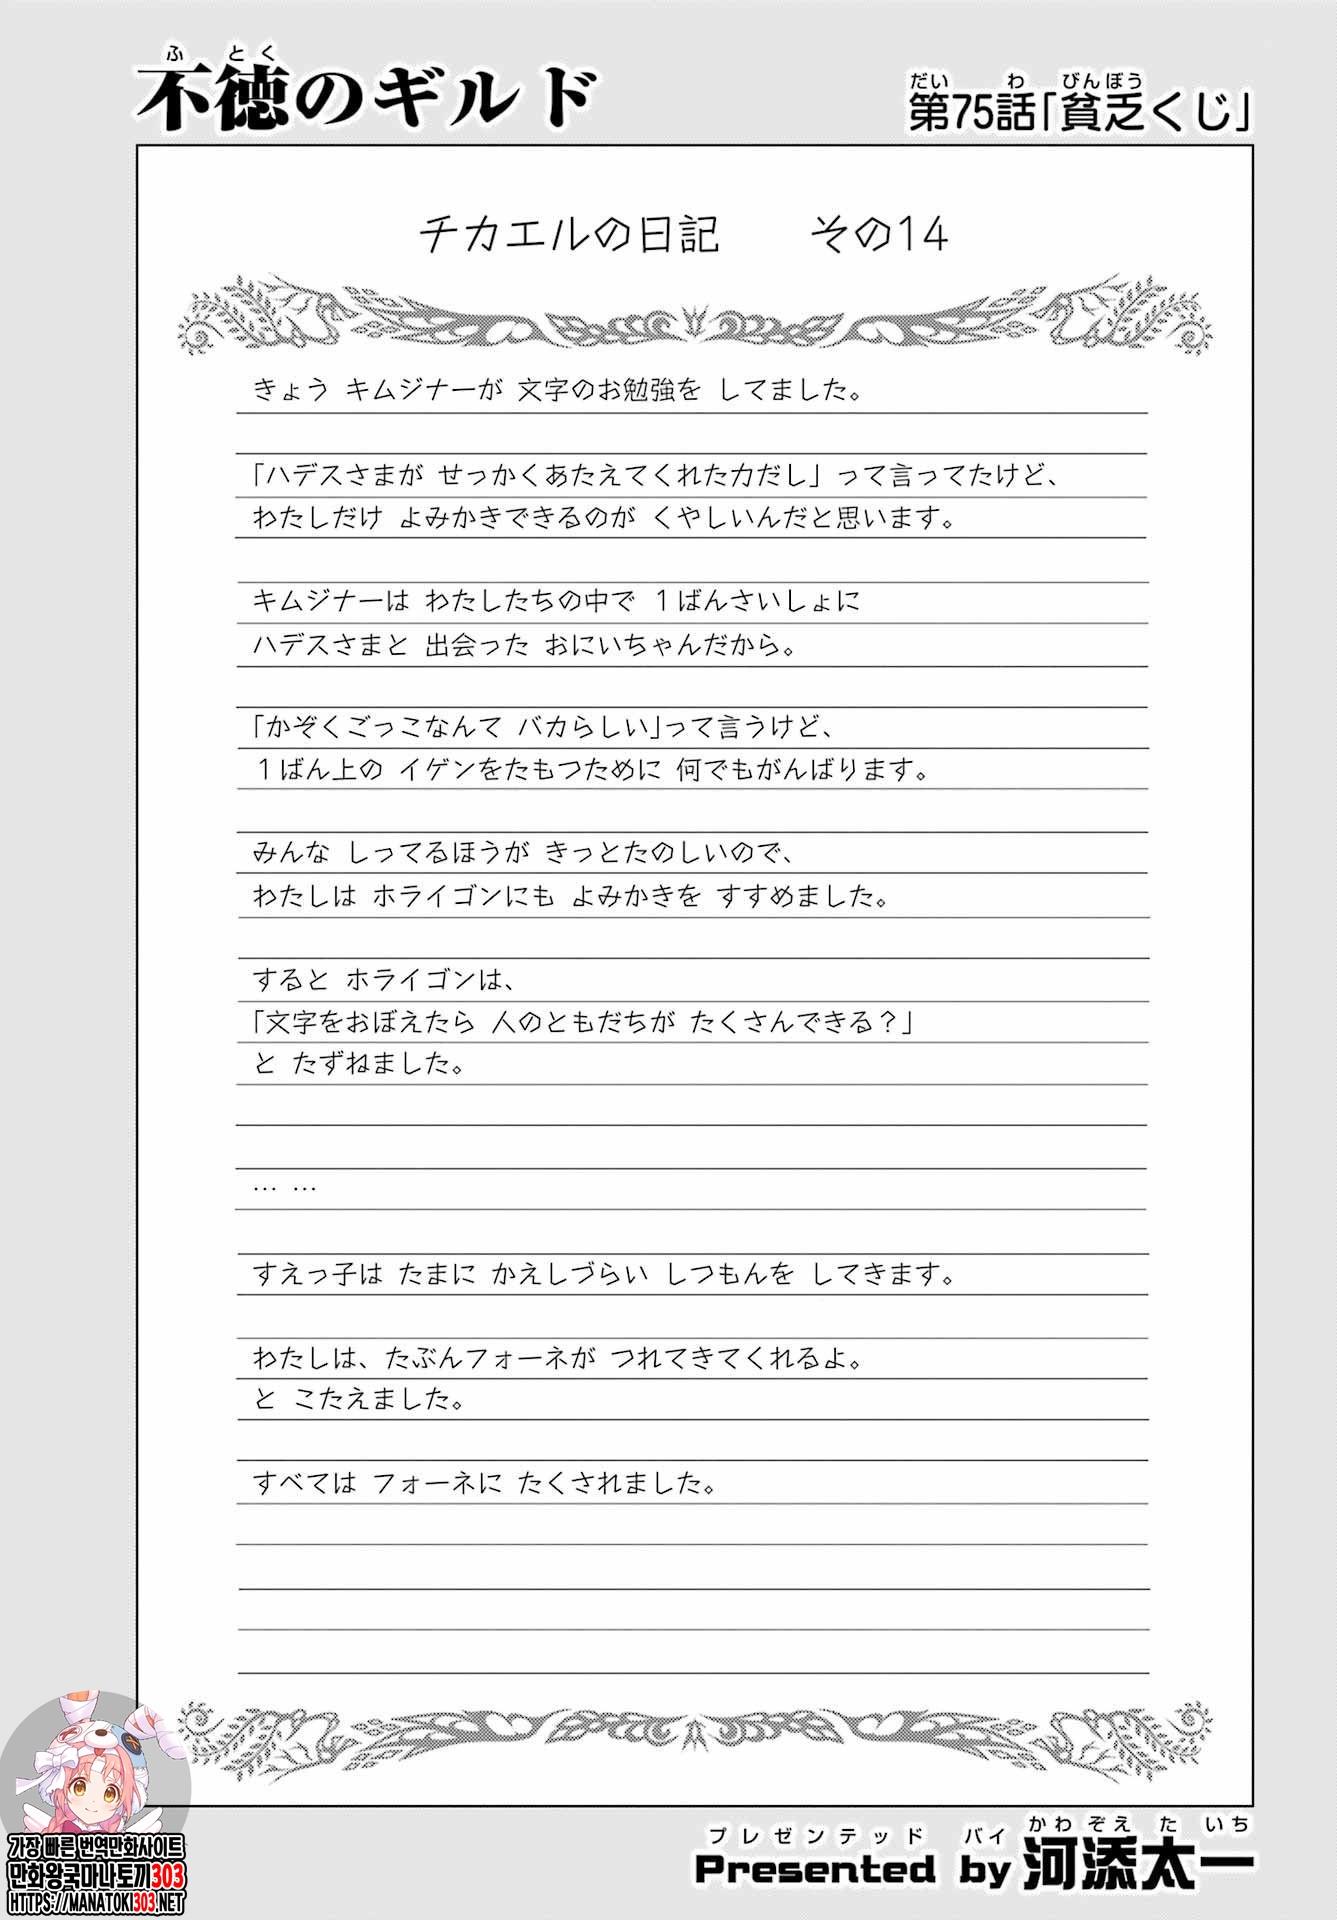 ふとく
不徳のギルド
だい わ びんぼう
第75話「貧乏くじ」
チカエルの日記 その14
きょう キムジナーが 文字のお勉強を してました。
「ハデスさまが せっかくあたえてくれた力だし」 って言ってたけど、
わたしだけ よみかきできるのが くやしいんだと思います。
キムジナーは わたしたちの中で 1ばんさいしょに
ハデスさまと 出会った おにいちゃんだから。
「かぞくごっこなんて バカらしい」って言うけど、
1ばん上の イゲンをたもつために 何でもがんばります。
みんな しってるほうが きっとたのしいので、
わたしは ホライゴンにも よみかきを すすめました。
すると ホライゴンは、
「文字をおぼえたら 人のともだちが たくさんできる？」
と たずねました。
… …
すえっ子は たまに かえしづらい しつもんを してきます。
わたしは、たぶんフォーネが つれてきてくれるよ。
と こたえました。
すべては フォーネに たくされました。
プレゼンテッド バイ かわぞえ たいち
Presented by 河添太一
가장 빠른 번역만화사이트
만화왕국마나토끼303
HTTPS://MANATOKI303.NET